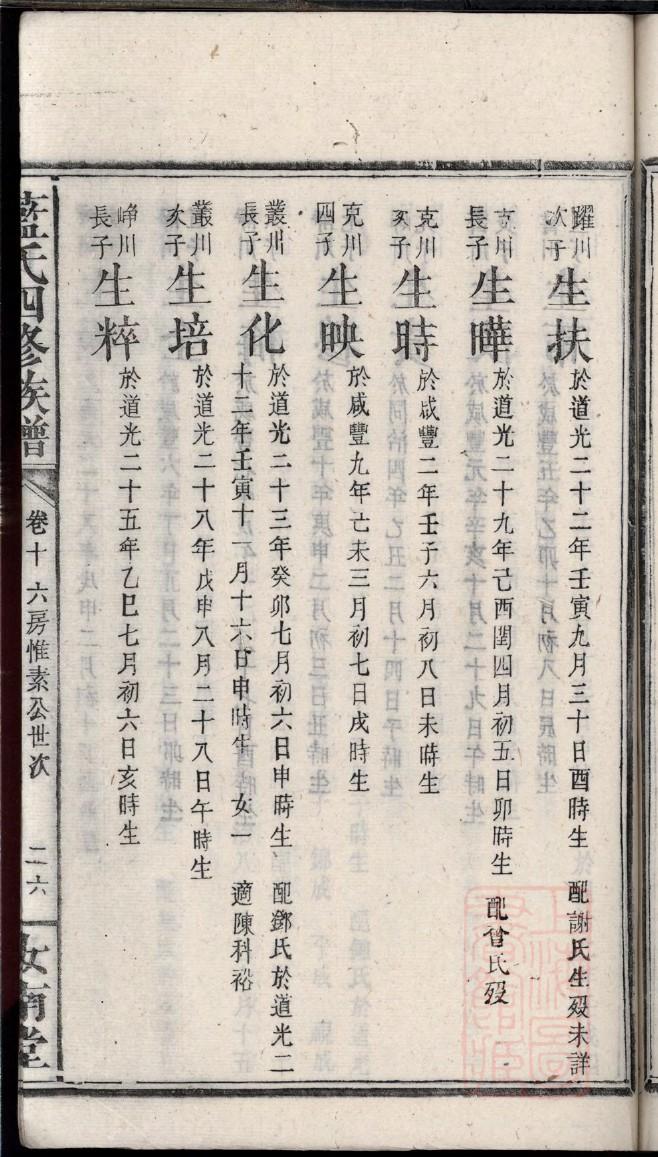 躍川次子 生扶 於道光二十二年壬寅九月三十日酉時生 配謝氏生殁未詳
克川長子 生曄 於道光二十九年己酉閏四月初五日卯時生 配曾氏殁
克川次子 生時 於咸豐二年壬子六月初八日未時生
克川四子 生映 於咸豐九年己未三月初七日戌時生
叢川長子 生化 於道光二十三年癸卯七月初六日申時生 配鄧氏於道光二
十二年壬寅十一月十六日申時生 女一 適陳科裕
叢川次子 生培 於道光二十八年戊申八月二十八日午時生
崢川長子 生粹 於道光二十五年乙巳七月初六日亥時生
藍氏四修族譜 卷十 六房惟素公世次 二六 汝南堂